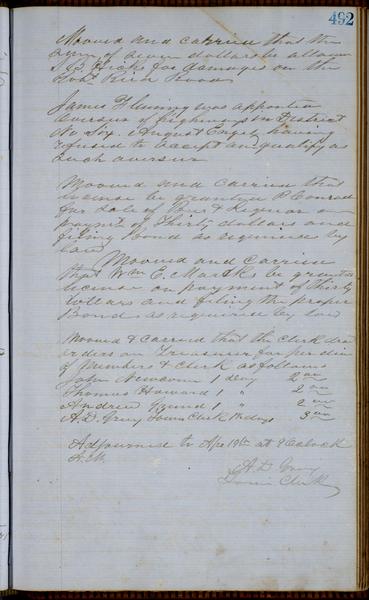 492
Mooved and carried that the
sum of seven dollars be allowed
Hicks for damages on the
Rich Road
James Fleming was appointed
overseer of highways in District
No Six. August Engel having
refused to accept and qualify as
such overseer
Mooved and carried that
license be granted P Conrad
for sale of Beer & Liquor on
payment of Thirty dollars and
filing bond as required by
law
Mooved and Carried
that Wm E. Marks be granted
license on payment of thirty
dollars and filing the proper
Bond as required by law
Mooved & Carried that the Clerk draw
orders on Treasurer for per diem
of Members & Clerk as follows
John 1 day 2 00
Thomas Howard 1 " 2 00
Andrew 1 " 2 00
A.D. Gray Town Clerk days 3 00
Adjourned to 19th at 9 Oclock
A.M.
A. D. Gray
Town Clerk